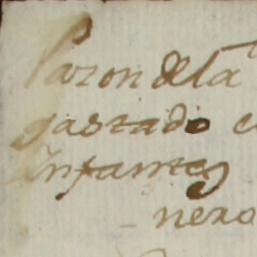 Razon de la
gastado e
Infantes
nero